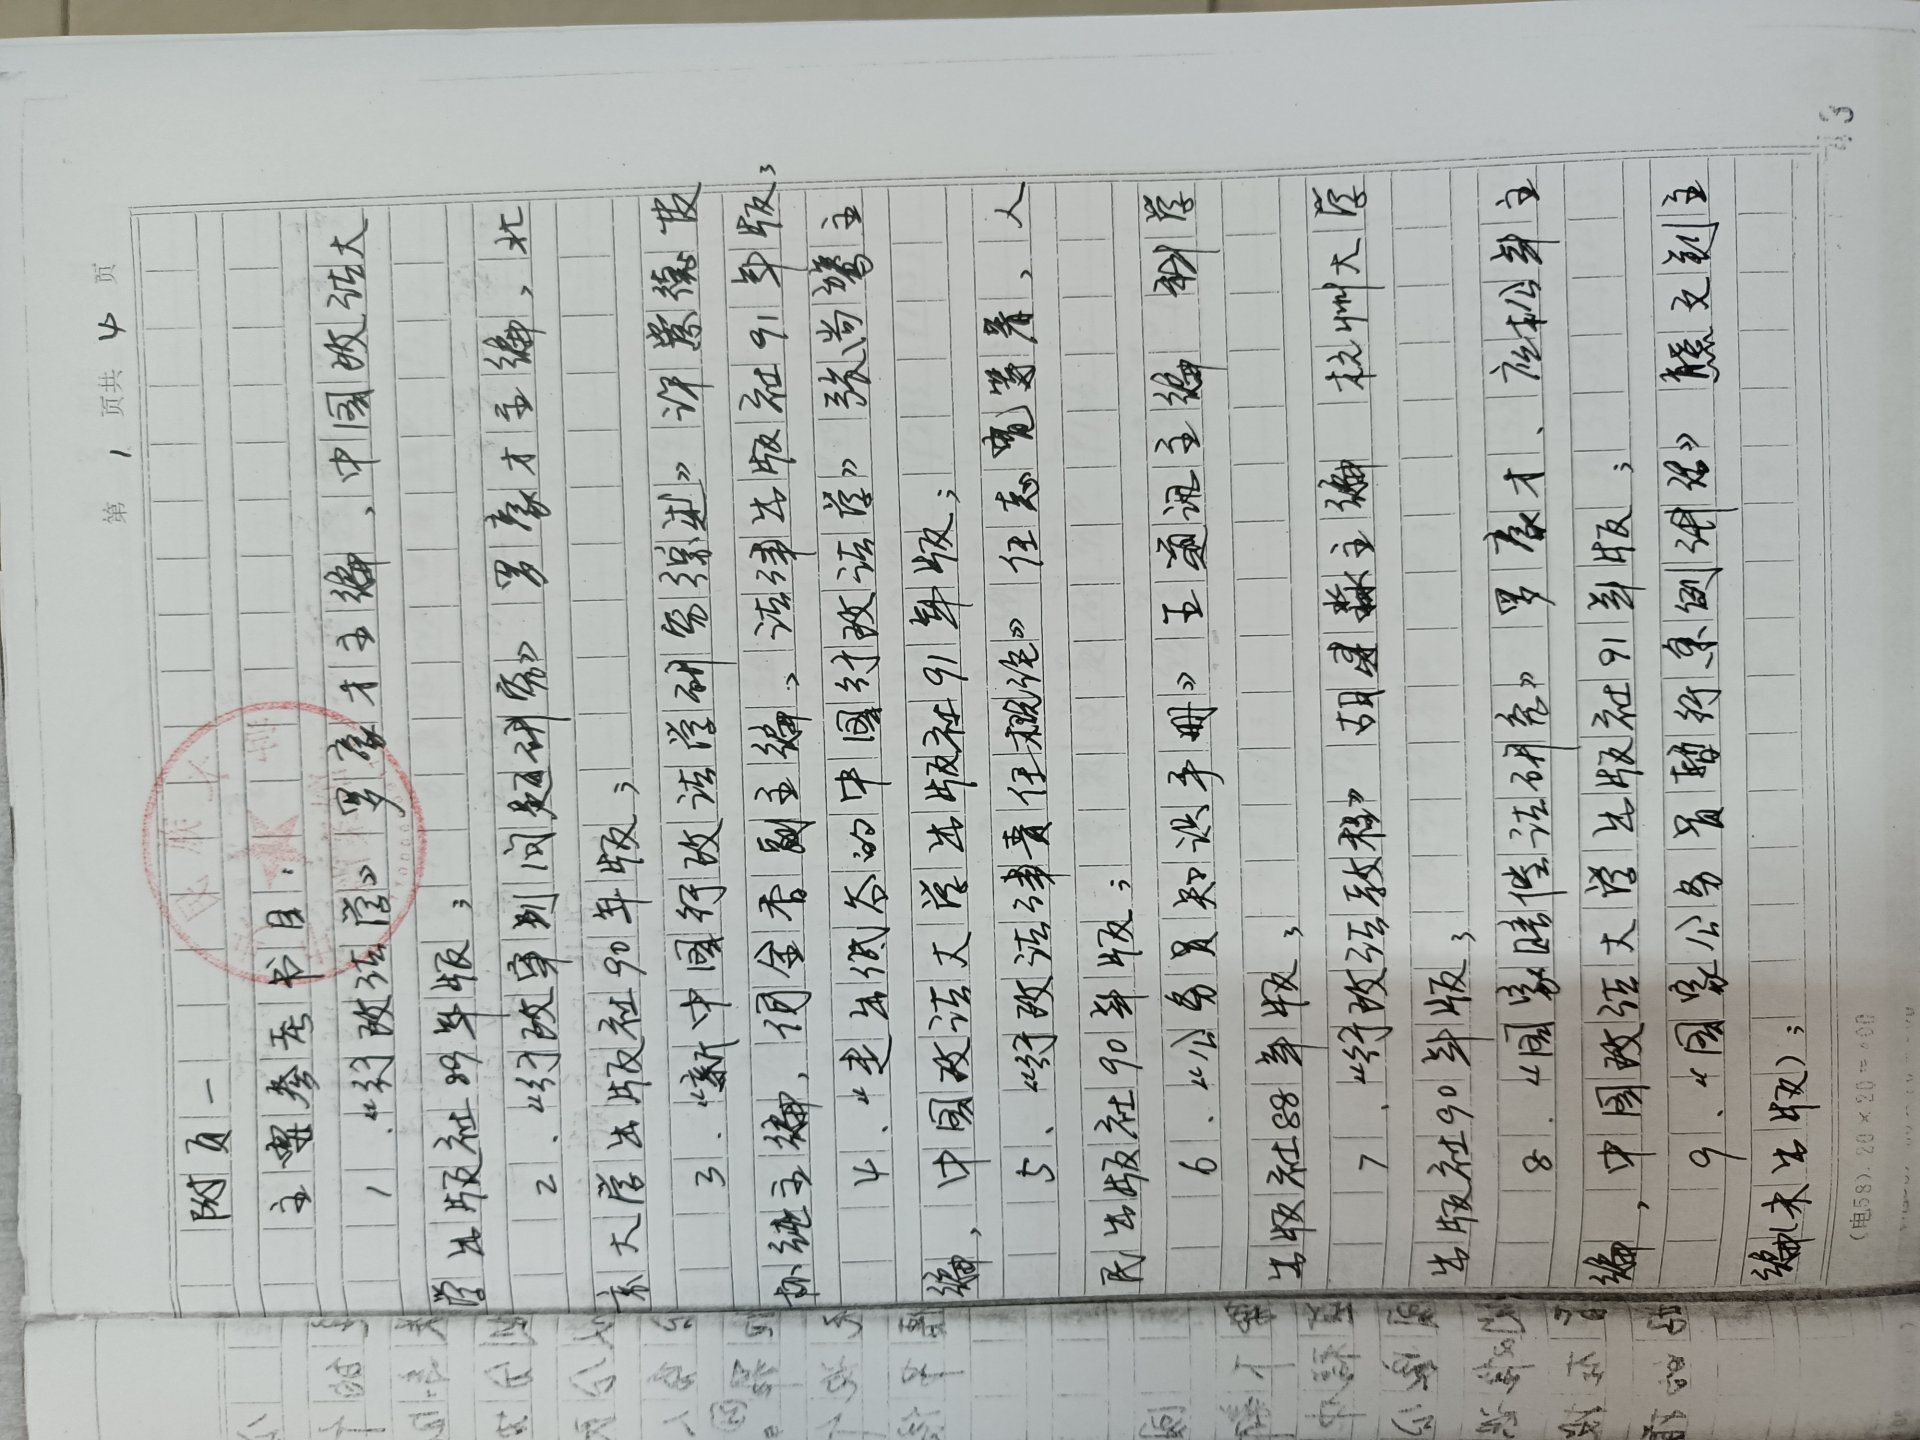 第 1 页共 4 页
附页一
主要参考书目：
1、《行政法学》罗豪才主编、中国政法大
学出版社89年版；
2、《行政审判问题研究》罗豪才主编，北
京大学出版社90年版；
3、《新中国行政法学研究综述》许崇德、皮
纯协主编，何金香副主编、法律出版社91年版；
4、《走出低谷的中国行政法学》张尚鷟主
编，中国政法大学出版社91年版；
5、《行政法律责任概论》任志宽等著、人
民出版社90年版；
6、《公务员知识手册》王通讯主编 科学
出版社88年版；
7、《行政法教程》胡建淼主编 杭州大学
出版社90年版；
8、《国家赔偿法研究》罗豪才、应松年主
编，中国政法大学出版社91年版；
9、《国家公务员暂行条例讲话》熊文钊主
编(未出版)；
(电58).20×20=400